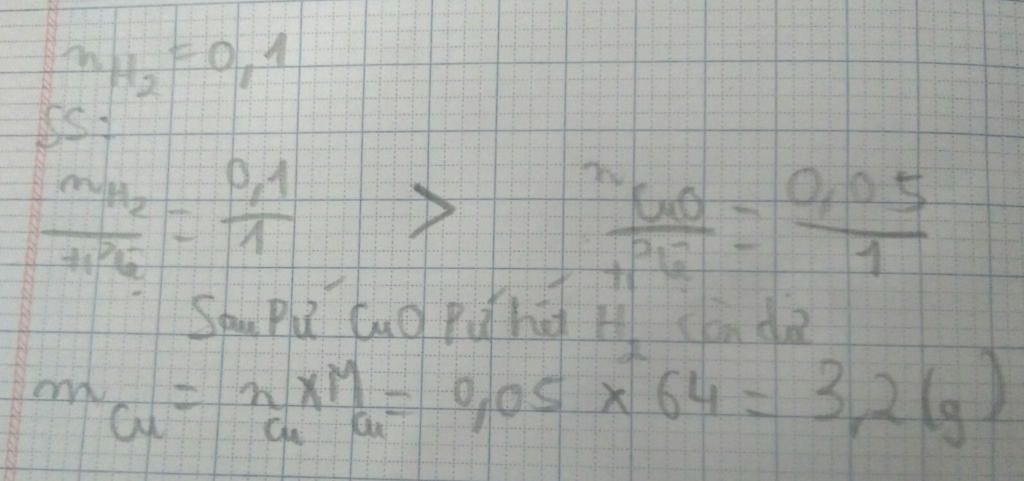 n H2 = 0,1
SS:
n H2 / tỉ lệ = 0,1 / 1 > n CuO / tỉ lệ = 0,05 / 1
Sau PƯ CuO PƯ hết H2 còn dư
m Cu = n Cu x M Cu = 0,05 x 64 = 3,2 (g)